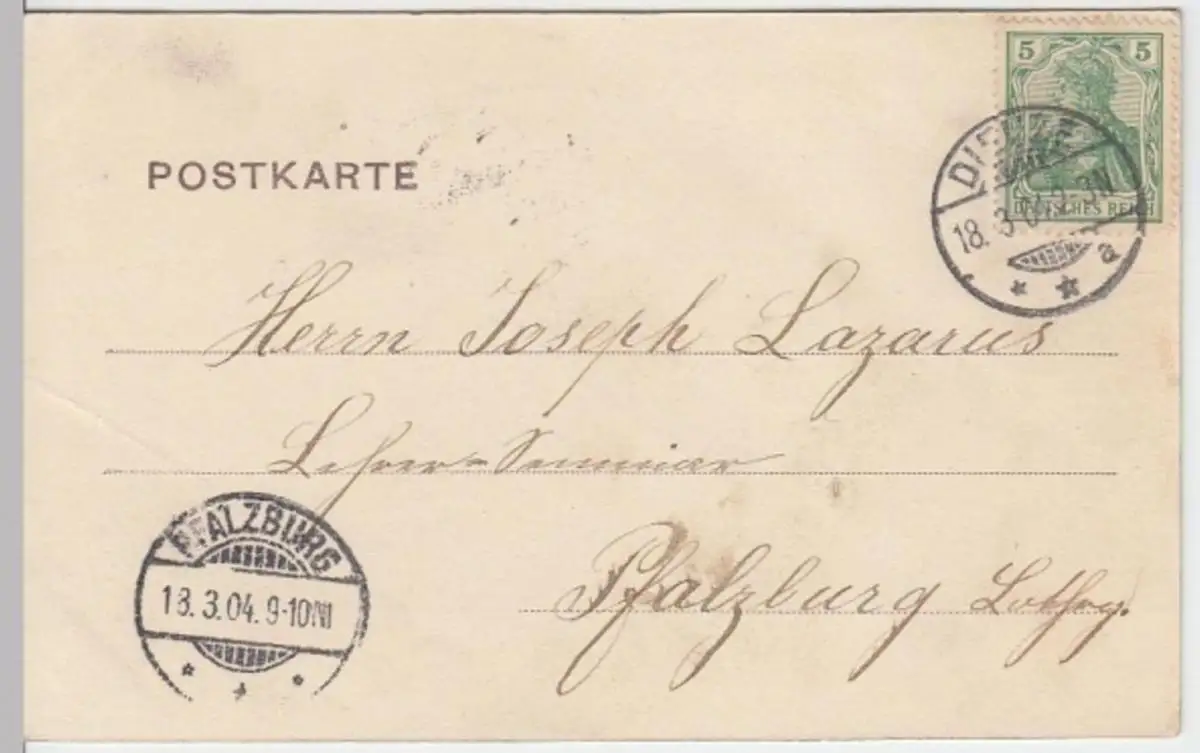 5 5
DEUTSCHES REICH
DIEUZE
18. 3. 04. 2-3N
a
POSTKARTE
Herrn Joseph Lazarus
Lehrer-Seminar
Pfalzburg Lothrg.
PFALZBURG
18.3.04. 9-10N